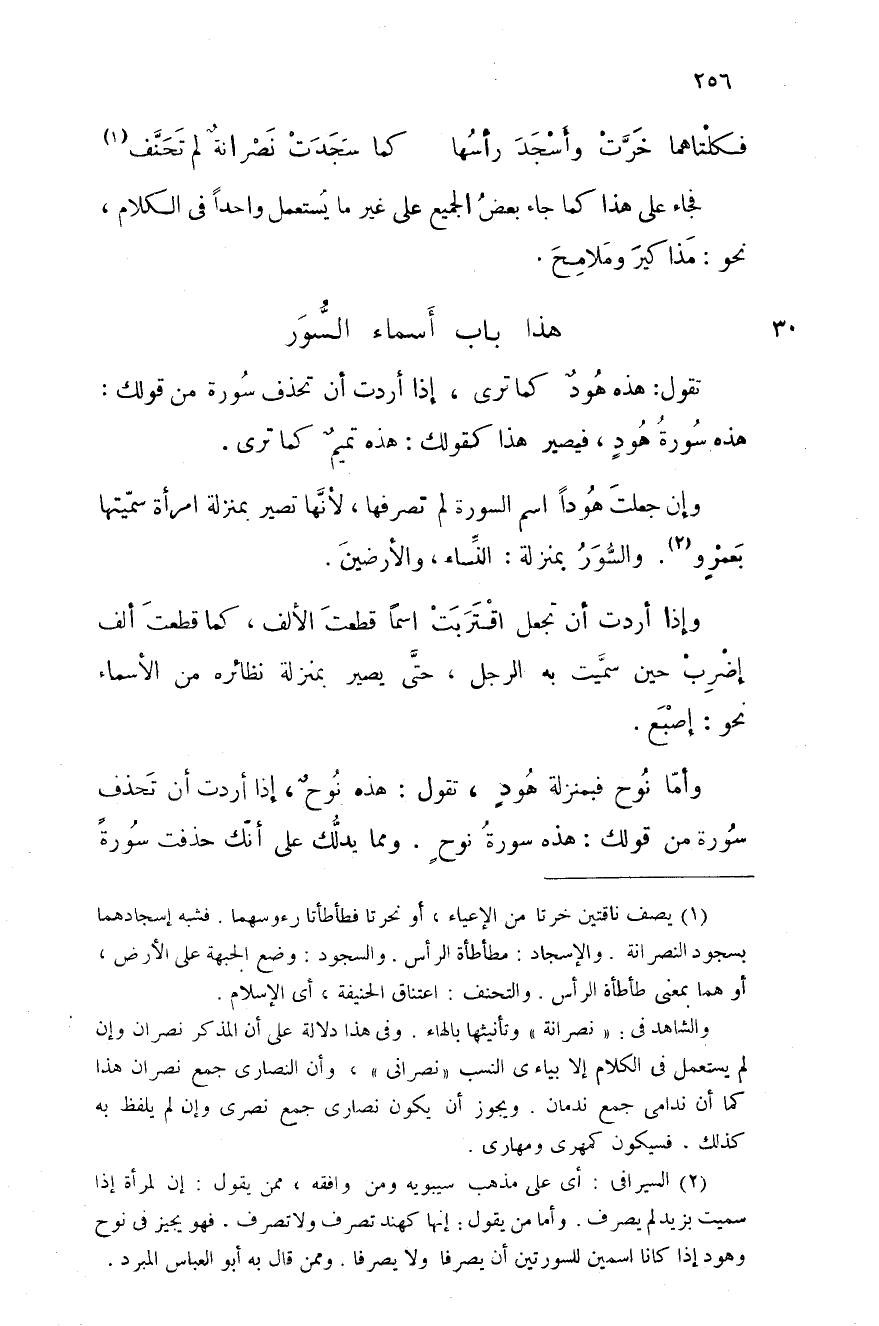 ٢٥٦
فكلْتاهما خَرَّتْ وأَسْجَدَ رأسُها كما سَجَدَتْ نَصْرانةٌ لم تَحَنَّف(١)
فجاء على هذا كما جاء بعضُ الجميع على غير ما يُستعمل واحداً فى الكلام ،
نحو : مَذاكيرَ ومَلامِحَ .
٣٠ هذا باب أَسماء السُّوَر
تقول: هذه هُودٌ كما ترى ، إذا أردت أن تحذف سُورة من قولك :
هذه سُورةُ هُودٍ ، فيصير هذا كقولك : هذه تميمٌ كما ترى .
وإن جعلتَ هُوداً اسم السورة لم تصرفها ، لأنَّها تصير بمنزلة امرأة سمّيتها
بَعمْرٍو(٢). والسُّوَرُ بمنزلة : النِّساء ، والأرضينَ .
وإذا أردت أن تجعل اقْتَرَبَتْ اسماً قطعتَ الألف ، كما قطعتَ ألف
إضْرِبْ حين سمَّيت به الرجل ، حتَّى يصير بمنزلة نظائره من الأسماء
نحو : إصْبَع .
وأمّا نُوح فبمنزلة هُودٍ ، تقول : هذه نُوحٌ ، إذا أردت أن تَحذف
سُورة من قولك : هذه سورةُ نوحٍ . ومما يدلُّك على أنّك حذفت سُورةً
(١) يصف ناقتين خرتا من الإعياء ، أو نحرتا فطأطأتا رءوسهما . فشبه إسجادهما
بسجود النصرانة . والإسجاد : مطأطأة الرأس . والسجود : وضع الجبهة على الأرض ،
أو هما بمعنى طأطأة الرأس . والتحنف : اعتناق الحنيفة ، أى الإسلام .
والشاهد فى : « نصرانة » وتأنيثها بالهاء . وفى هذا دلالة على أن المذكر نصران وإن
لم يستعمل فى الكلام إلا بياءى النسب «نصرانى» ، وأن النصارى جمع نصران هذا
كما أن ندامى جمع ندمان . ويجوز أن يكون نصارى جمع نصرى وإن لم يلفظ به
كذلك . فسيكون كمهرى ومهارى .
(٢) السيرافى : أى على مذهب سيبويه ومن وافقه ، ممن يقول : إن لمرأة إذا
سميت بزيد لم يصرف . وأما من يقول : إنها كهند تصرف ولا تصرف . فهو يجيز فى نوح
وهود إذا كانا اسمين للسورتين أن يصرفا ولا يصرفا . وممن قال به أبو العباس المبرد .